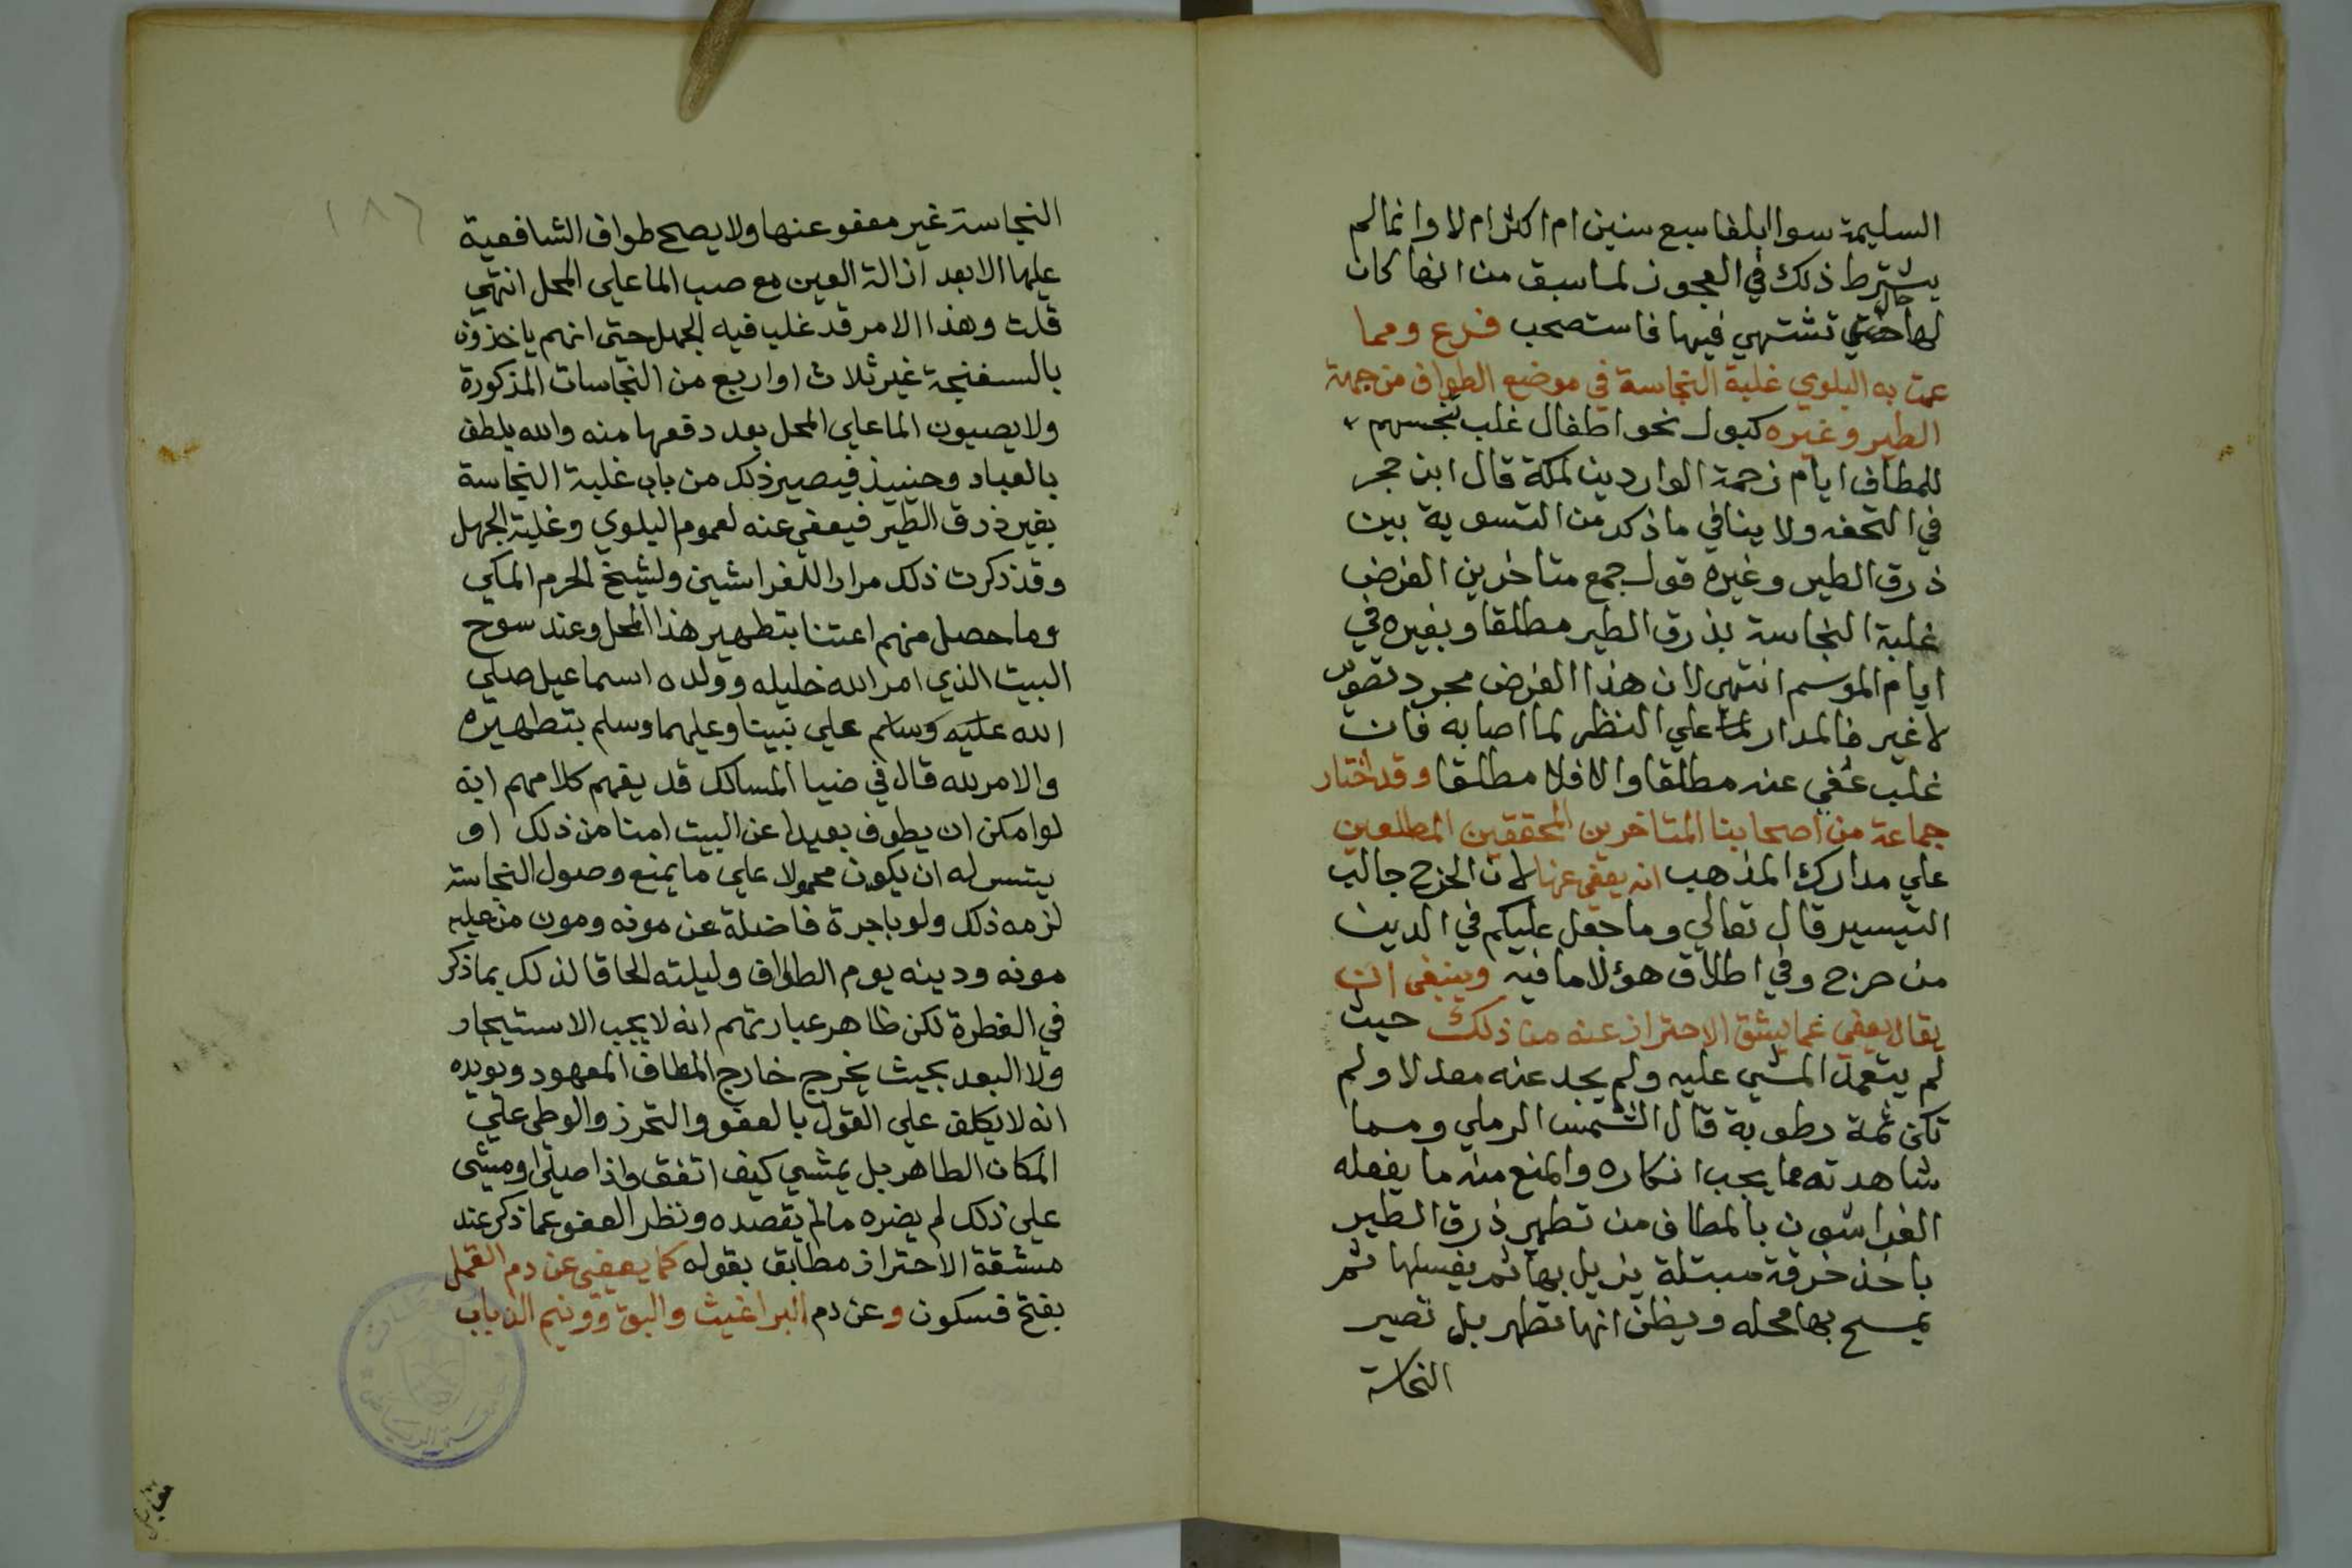 السليمة سوا ابلغا سبع سنين ام اكثر ام لا وانما لم
يشترط ذلك في العجوز لما سبق من انها كان
لها حال تشتهي فيها فاستصحب فرع ومما
عمت به البلوي غلبة النجاسة في موضع الطواف من جهة
الطير وغيره كبول نحو اطفال غلب تنجسهم
للمطاف ايام زحمة الواردين لمكة قال ابن حجر
في التحفه ولا ينافي ما ذكر من التسوية بين
ذرق الطير وغيره قول جمع متاخرين الفرض
غلبة النجاسة بذرق الطير مطلقا وبغيره في
ايام الموسم انتهي لان هذا الفرض مجرد تصوير
لا غير فالمدار علي النظر لما اصابه فان
غلب عفي عنه مطلقا والا فلا مطلقا وقد اختار
جماعة من اصحابنا المتاخرين المحققين المطلعين
علي مدارك المذهب انه يعفي عنها لان الحرج جالب
التيسير قال تعالي وما جعل عليكم في الدين
من حرج وفي اطلاق هؤلا ما فيه وينبغي ان
يقال يعفي عما يشق الاحتراز عنه من ذلك حيث
لم يتعمد المشي عليه ولم يجد عنه معدلا ولم
تكن ثمة رطوبة قال الشمس الرملي ومما
شاهدته مما يجب انكاره والمنع منه ما يفعله
الفراشون بالمطاف من تطهير ذرق الطير
باخذ خرقة مبتلة يزيل بها ثم يغسلها ثم
يمسح بها محله ويظن انها تطهر بل تصير
النجاسة
١٨٢
النجاسة غير معفو عنها ولا يصح طواف الشافعية
عليها الا بعد ازالة العين مع صب الما علي المحل انتهي
قلت وهذا الامر قد غلب فيه الجهل حتي انهم ياخذون
بالسفنجة غير ثلاث او اربع من النجاسات المذكورة
ولا يصبون الما علي المحل بعد دفعها منه والله يلطف
بالعباد وحينيذ فيصير ذلك من باب غلبة النجاسة
بغير ذرق الطير فيعفي عنه لعموم البلوي وغلبة الجهل
وقد ذكرت ذلك مرارا للفراشين ولشيخ الحرم المكي
وما حصل منهم اعتنا بتطهير هذا المحل وعند سوح
البيت الذي امر الله خليله وولده اسماعيل صلي
الله عليه وسلم علي نبينا وعليهما وسلم بتطهيره
والامر لله قال في ضيا المسالك قد يفهم كلامهم انه
لو امكن ان يطوف بعيدا عن البيت امنا من ذلك او
يتسر له ان يكون محمولا علي ما يمنع وصول النجاسة
لزمه ذلك ولو باجرة فاضلة عن مونه ومون من عليه
مونه ودينه يوم الطواف وليلته الحاقا لذلك بما ذكر
في الفطرة لكن ظاهر عبارتهم انه لا يجب الاستيجار
ولا البعد بحيث يخرج خارج المطاف المعهود ويويده
انه لا يكلف علي القول بالعفو والتحرز والوطي علي
المكان الطاهر بل يمشي كيف اتفق واذا صلي او مشي
علي ذلك لم يضره مالم يقصده ونظر العفو عما ذكر عند
مشقة الاحتراز مطابق بقوله كما يعفي عن دم القمل
بفتح فسكون وعن دم البراغيث والبق وونيم الذباب